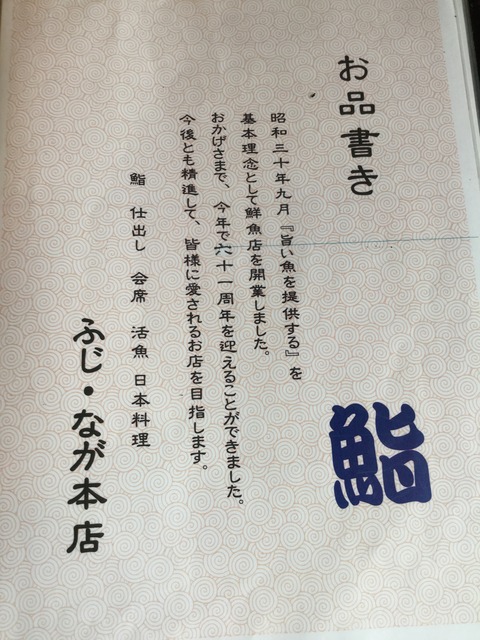 お品書き
鮨
昭和三十年九月『旨い魚を提供する』を
基本理念として鮮魚店を開業しました。
おかげさまで、今年で六十一周年を迎えることができました。
今後とも精進して、皆様に愛されるお店を目指します。
鮨 仕出し 会席 活魚 日本料理
ふじ・なが本店